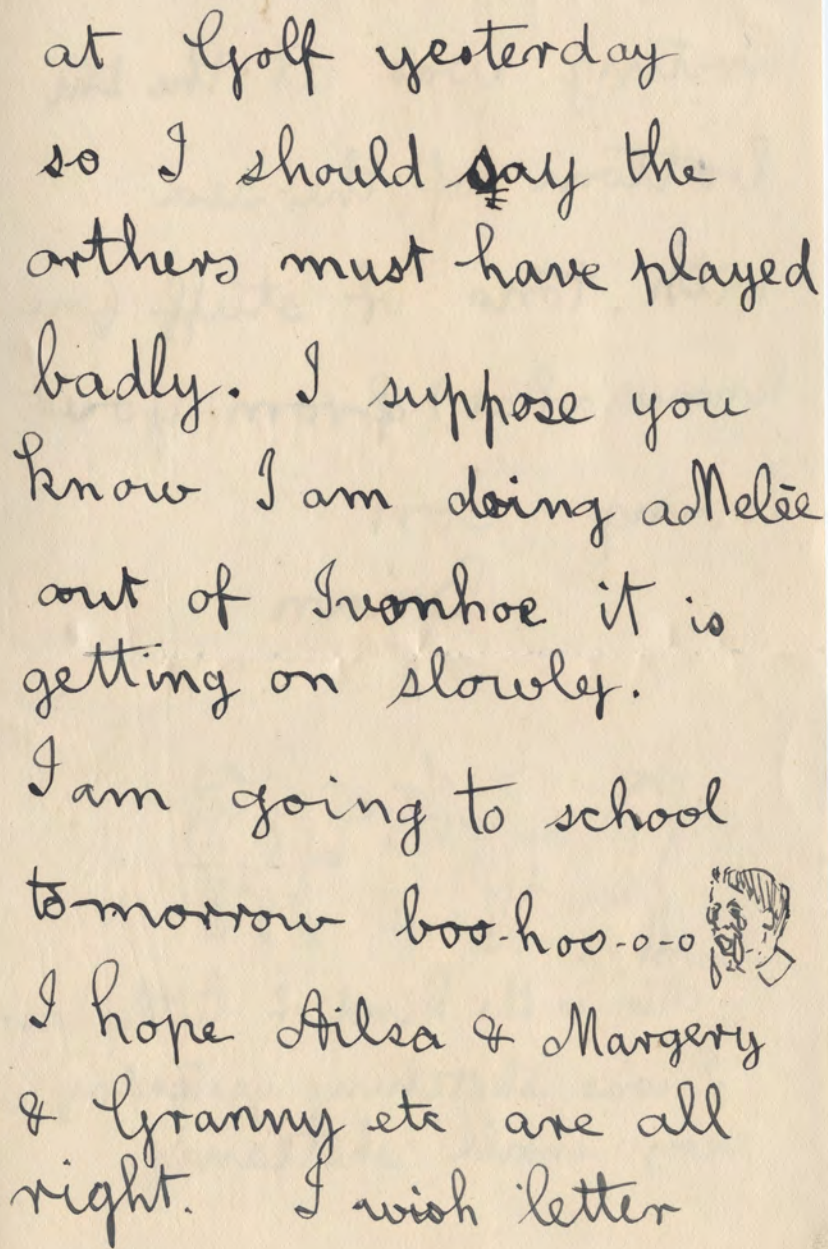 at Golf yesterday
so I should say the
orthers must have played
badly. I suppose you
know I am doing a Melēe
out of Ivonhoe it is
getting on slowley.
I am going to school
tomorrow boo-hoo-o-o
I hope Ailsa & Margery
& Granny etc are all
right. I wish letter